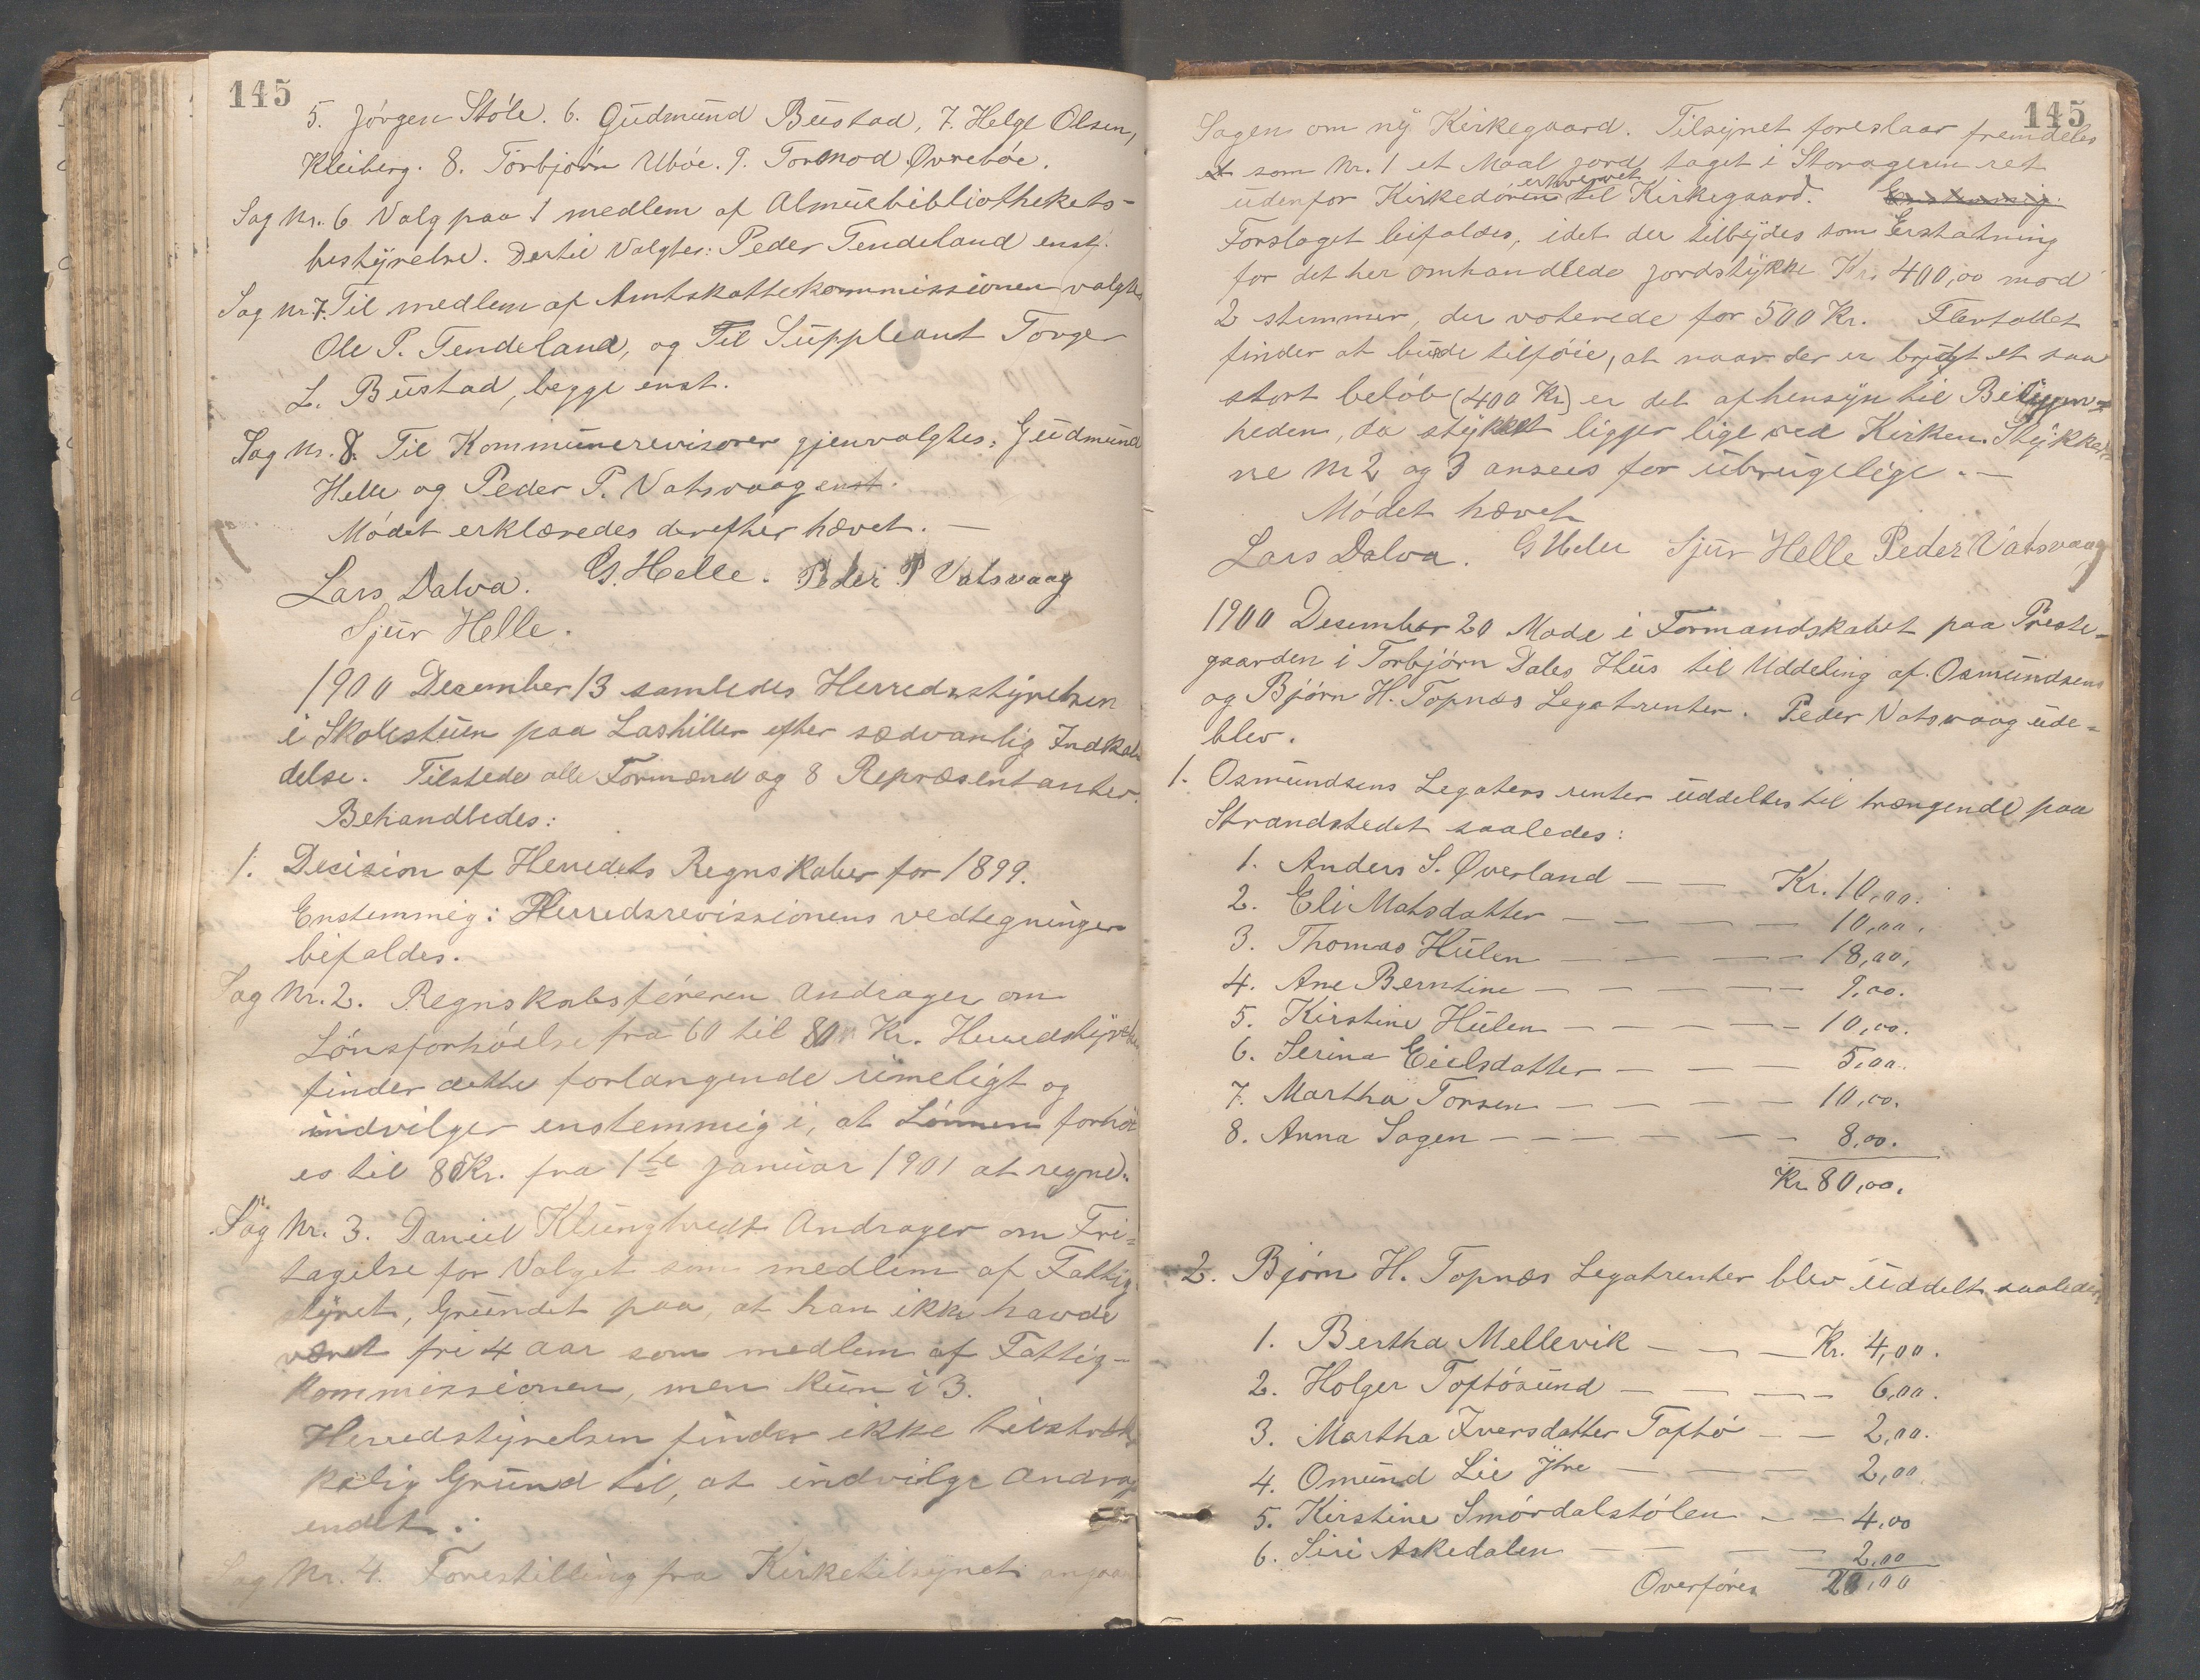 145
5. Jörgen Støle. 6. Gudmund Bustad, 7. Helge Olsen,
Kleiberg. 8. Torbjørn Ubøe. 9. Tormod Øvrebøe.
Sag Nr. 6 Valg paa 1 medlem af Almuebibliothekets-
bestyrelse. Dertil Valgtes: Peder Tendeland enst.
Sag Nr 7. Til medlem af Amtskattekommissionen valgtes
Ole P. Tendeland, og Til Suppleant Torger
L. Bustad, begge enst.
Sag Nr. 8. Til Kommunerevisorer gjenvalgtes: Gudmund
Helle og Peder P. Vatsvaag enst.
Mödet erklæredes derefter hævet. —
Lars Dalva. G. Helle. Peder P Vatsvaag
Sjur Helle.
1900 Desember 13 samledes Herredsstyrelsen
i Skolestuen paa Lashiller efter sædvanlig Indkal-
delse. Tilstede alle Formænd og 8 Repræsentanter.
Behandledes:
1. Desision af Herredets Regnskaber for 1899.
Enstemmig: Herredsrevissionens vedtegninger
bifaldes.
Sag Nr. 2. Regnskabsføreren Andrager om
Lönsforhöielse fra 60 til 80 Kr. Herredstyrelsen
finder dette forlangende rimeligt og
indvilger enstemmig i, at Lönnen forhöi
es til 80 Kr. fra 1ste Januar 1901 at regne.
Sag Nr. 3. Daniel Klungtvedt Andrager om Fri-
tagelse for Valget som medlem af Fattig
styret, Grundet paa, at han ikke havde
været fri 4 aar som medlem af Fattig-
kommissionen, men kun i 3.
Herredstyrelsen finder ikke tilstræk
kelig Grund til, at indvilge Andrag
endet.
Sag Nr. 4. Forestilling fra Kirketilsynet angaar
145
Sagen om ny Kirkegaard. Tilsynet foreslaar fremdeles
som Nr. 1 et Maal jord taget i Storageren ret
udenfor Kirkedören erhvervet til Kirkegaard. Enstemmig.
Forslaget bifaldes, idet der tilbydes som Erstatning
for det her omhandlede jordstykke Kr. 400,00 mod
2 stemmer, der voterede for 500 Kr. Flertallet
finder at burde tilföie, at naar der er brugt et saa
stort belöb (400 Kr) er det af hensyn til Beliggen-
heden, da stykket ligger lige ved Kirken. Stykker
ne Nr 2 og 3 ansees for ubrugelige. —
Mödet hævet
Lars Dalva. G Helle Sjur Helle Peder Vatsvaag
1900 Desember 20 Møde i Formandskabet paa Præste-
gaarden i Torbjörn Dales Hus til Uddeling af Osmundsens
og Björn H. Topnæs Legatrenter. Peder Vatsvaag ude-
blev.
1. Osmundsens Legaters renter uddeltes til trængende paa
Strandstedet saaledes:
1. Anders S. Øverland — — Kr. 10,00.
2. Eli Matsdatter — — — — 10,00.
3. Thomas Hulen — — — — 18,00.
4. Ane Berntine — — — — 9,00.
5. Kirstine Hulen — — — — 10,00.
6. Serina Eielsdatter — — — 5,00.
7. Martha Torsen — — — — 10,00.
8. Anna Sagen — — — — — 8,00.
Kr. 80,00.
2. Bjørn H. Topnæs Legatrenter blev uddelt saaledes
1. Bertha Mellevik — — — Kr. 4,00.
2. Holger Toftösund — — — — 6,00.
3. Martha Iversdatter Toftö — — 2,00.
4. Omund Lie ytre — — — 2,00
5. Kirstine Smördalstölen — — 4,00
6. Siri Askedalen — — — 2,00
Overföres 20,00